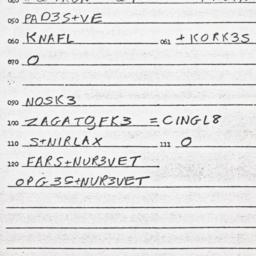 050 PAD3S+VE
060 KNAFL 061 +KORK3S
070 O
090 NOSK3
100 ZAGATOJFK3 = CINGL8
110 S+NIRLAX 111 O
120 FARS+NUR3VET
OPG3S+NUR3VET